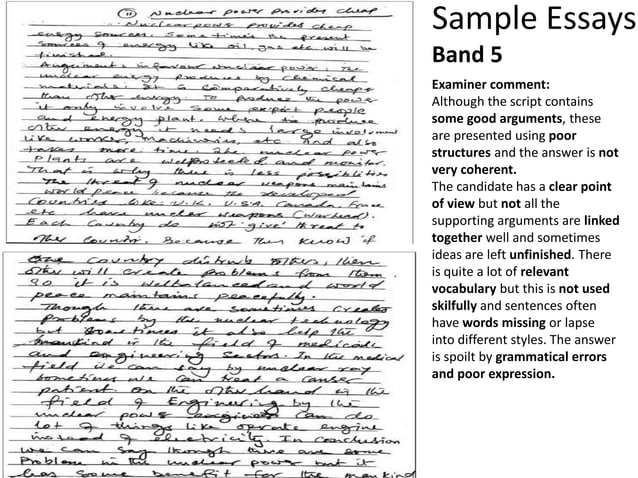 (11) Nuclear power provides cheap
Nuclear power provides cheap
energy sources. Some time the present
sources of energy like oil, gas etc will be
finished.
Augrements in favour nuclear power. The
nuclear energy produces by chemical
materials. It is comparatively cheaper
than other energy. To produce the power
it only involve some expert people
and energy plant. Where to produce
other energy it needs large involvment
like workers, machineries, etc. And also
takes more time. The nuclear power
plants are wellprotected and monitor.
That is why there is less possiblities
The threat of nuclear weapons maintains
world peace because the developed
Countries like U.K. U.S.A. Canada, France
etc have nuclear weapons (warhead).
Each Country do not 'give' threat to
other Country. Because they know if
one country distrub others, then
other will create problems from them.
So it is wellbalanced and world
peace maintains peacefully.
Though there are sometimes creates
problems by the nuclear technology
but sometimes it also help the
mankind in the field of medical
and engineering sectors. In the medical
field we can say by nuclear ray
sometimes we can treat a cancer
patient. On the other hand in the
field of Engineering by the
nuclear power can do
lot of things like operate engine
instead of electricity. In conclusion
we can say through there are some
Problem in the nuclear power but it
has some benefit for the mankind
Sample Essays
Band 5
Examiner comment:
Although the script contains
some good arguments, these
are presented using poor
structures and the answer is not
very coherent.
The candidate has a clear point
of view but not all the
supporting arguments are linked
together well and sometimes
ideas are left unfinished. There
is quite a lot of relevant
vocabulary but this is not used
skilfully and sentences often
have words missing or lapse
into different styles. The answer
is spoilt by grammatical errors
and poor expression.